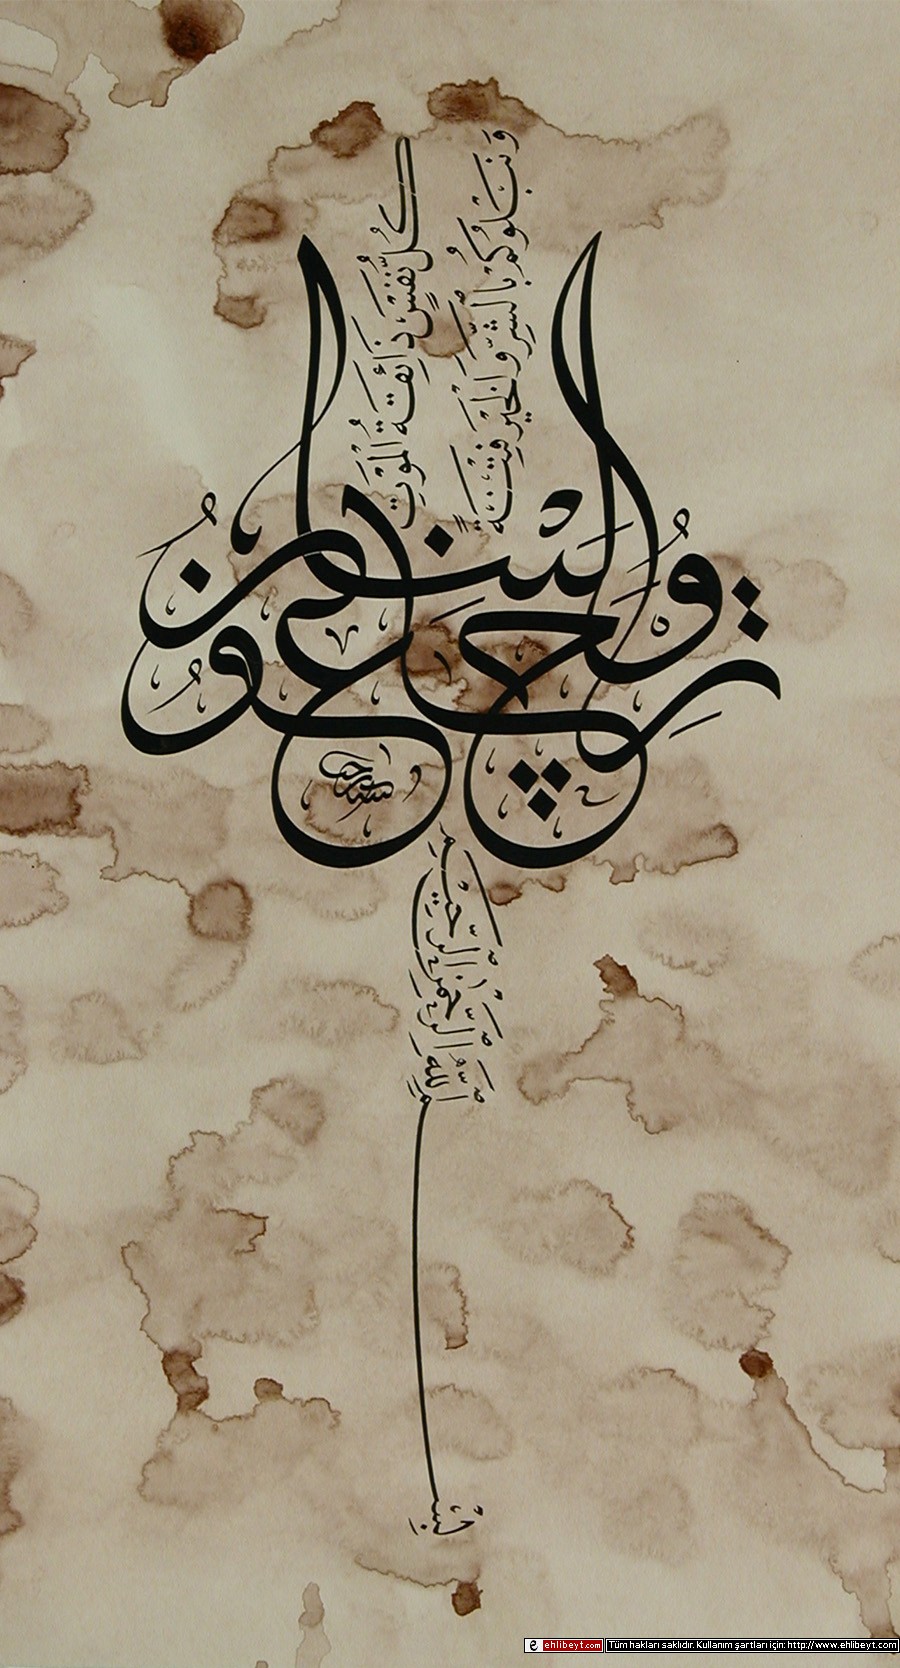 بِسْمِ اللّٰهِ الرَّحْمٰنِ الرَّحِيمِ
كُلُّ نَفْسٍ ذَائِقَةُ الْمَوْتِ
وَنَبْلُوكُمْ بِالشَّرِّ وَالْخَيْرِ فِتْنَةً
وَإِلَيْنَا تُرْجَعُونَ
ehlibeyt.com Tüm hakları saklıdır. Kullanım şartları için: http://www.ehlibeyt.com